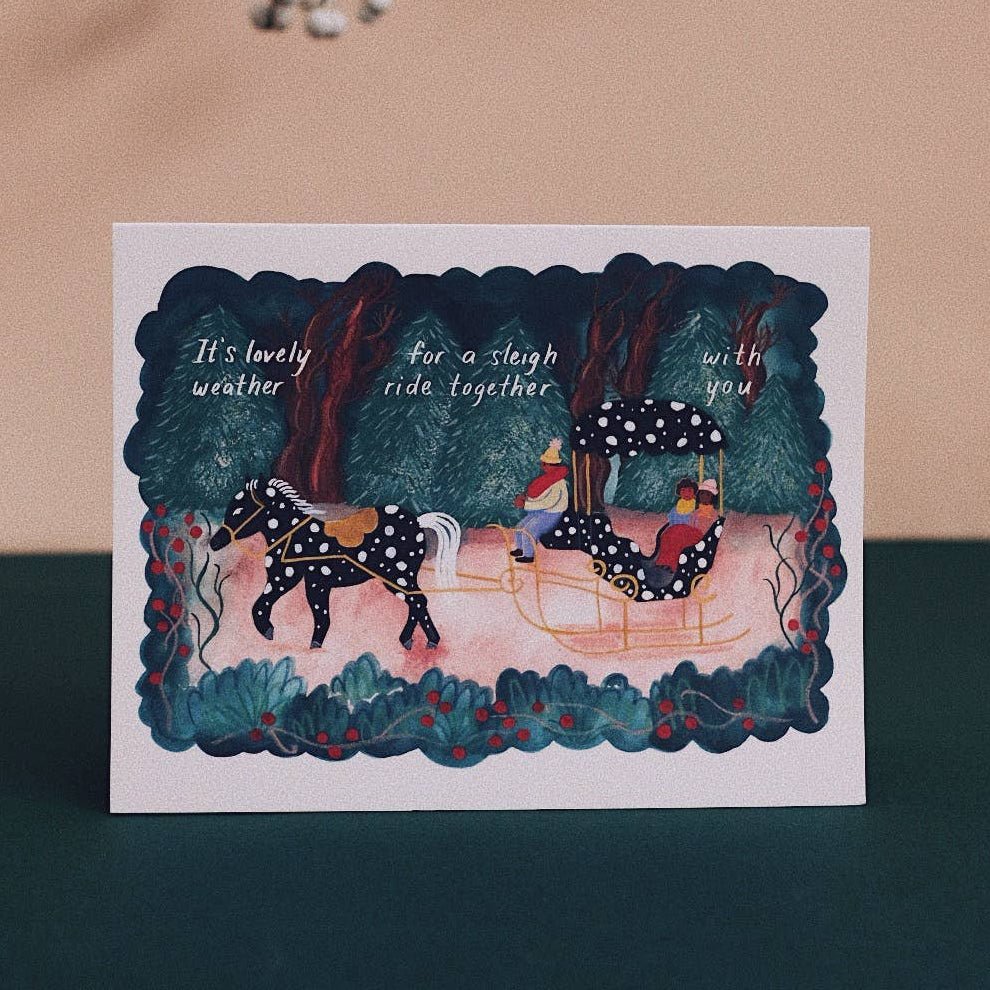 It's lovely for a sleigh with
weather ride together you